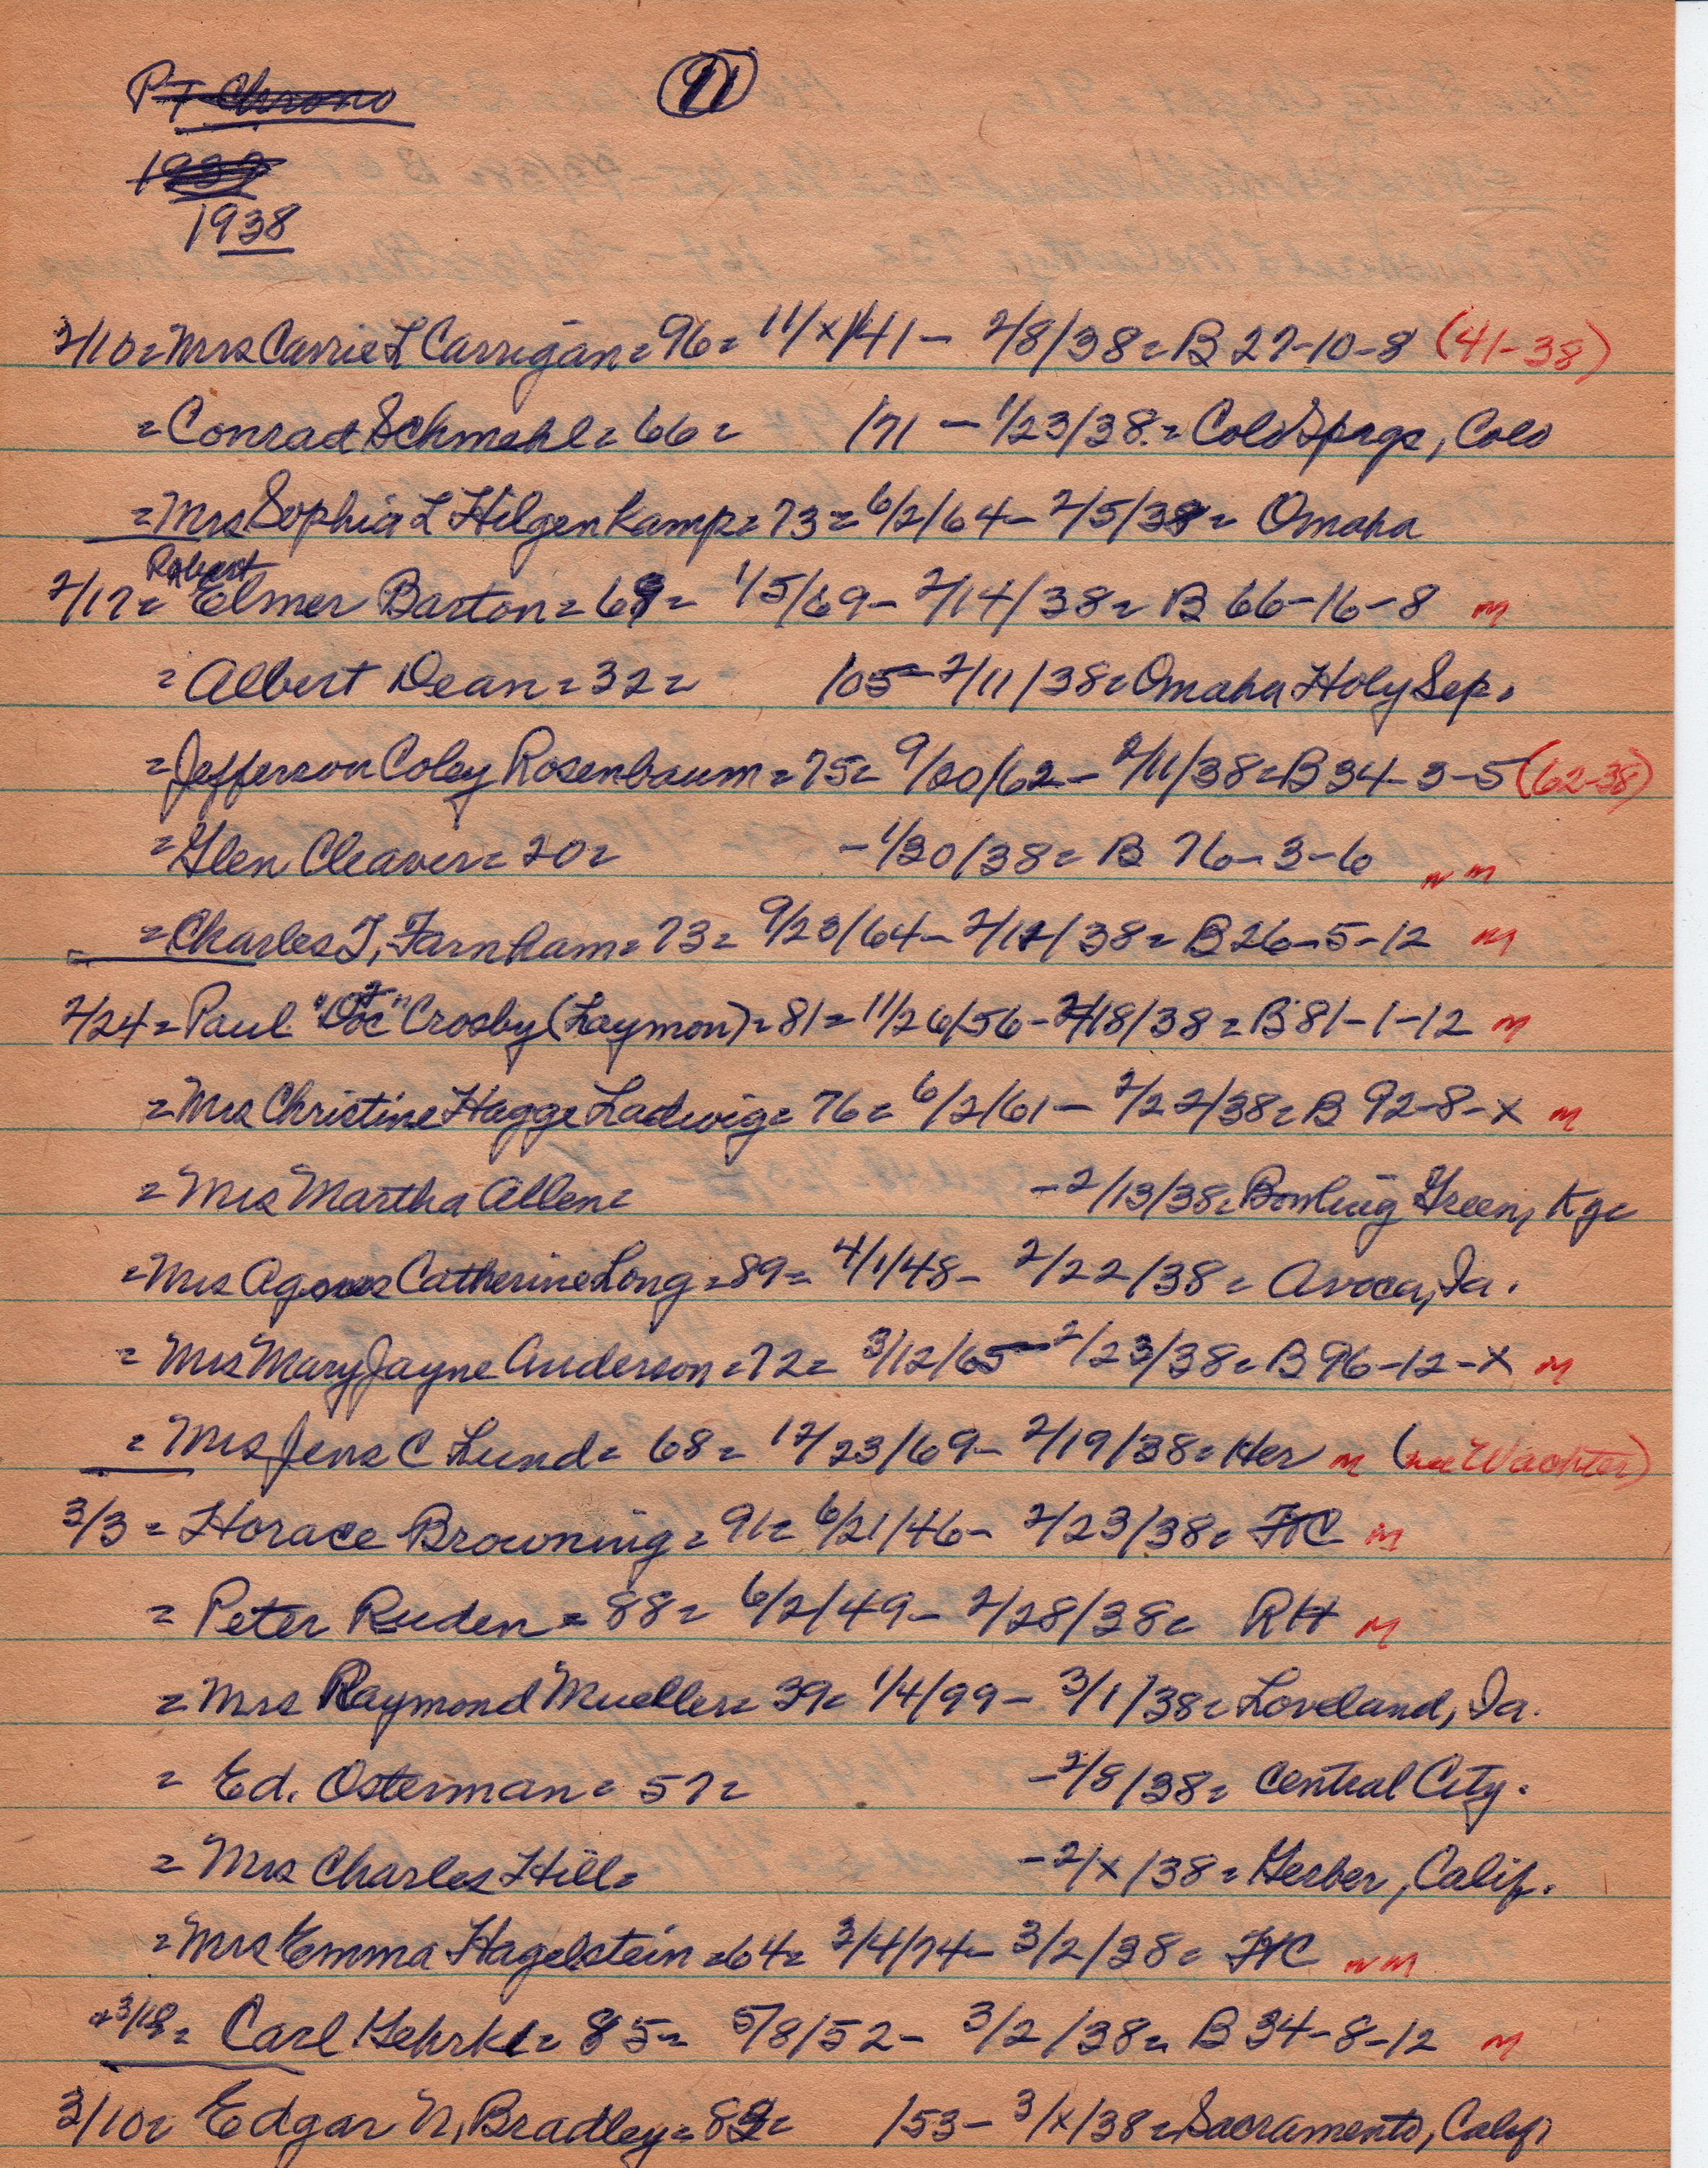 PT Chrono
11
1938
2/10 = Mrs Carrie L Carrigan = 96 = 11/x/41 - 2/8/38 = B 27-10-8 (41-38)
= Conrad Schmehl = 66 = /71 - 1/23/38 = Colo Spngs, Colo
= Mrs Sophia L Hilgenkamp = 73 = 6/2/64 - 2/5/38 = Omaha
Robert
2/17 = Elmer Barton = 69 = 1/5/69 - 2/14/38 = B 66-16-8 m
= Albert Dean = 32 = /05 - 2/11/38 = Omaha Holy Sep.
= Jefferson Coley Rosenbaum = 75 = 9/20/62 - 2/11/38 = B 34-3-5 (62-38)
= Glen Cleaver = 20 = - 1/30/38 = B 76-3-6 nm
= Charles T, Farnham = 73 = 9/23/64 - 2/12/38 = B 26-5-12 m
2/24 = Paul "Doc" Crosby (Laymon) = 81 = 11/26/56 - 2/18/38 = B 81-1-12 m
= Mrs Christine Hagge Ladwig = 76 = 6/2/61 - 2/22/38 = B 92-8-x m
= Mrs Martha Allen = - 2/13/38 = Bowling Green, Ky =
= Mrs Agnes Catherine Long = 89 = 4/1/48 - 2/22/38 = Avoca, Ia.
= Mrs Mary Jayne Anderson = 72 = 3/12/65 - 2/23/38 = B 96-12-x m
= Mrs Jens C Lund = 68 = 12/23/69 - 2/19/38 = Her m (nee Wachter)
3/3 = Horace Browning = 91 = 6/21/46 - 2/23/38 = FC m
= Peter Ruden = 88 = 6/2/49 - 2/28/38 = RH m
= Mrs Raymond Mueller = 39 = 1/4/99 - 3/1/38 = Loveland, Ia.
= Ed. Osterman = 57 = - 2/8/38 = Central City.
= Mrs Charles Hill = - 2/x/38 = Gerber, Calif.
= Mrs Emma Hagelstein = 64 = 3/4/74 - 3/2/38 = FC nm
+3/10 = Carl Gehrke = 85 = 5/8/52 - 3/2/38 = B 34-8-12 m
3/10 = Edgar N, Bradley = 85 = /53 - 3/x/38 = Sacramento, Calif